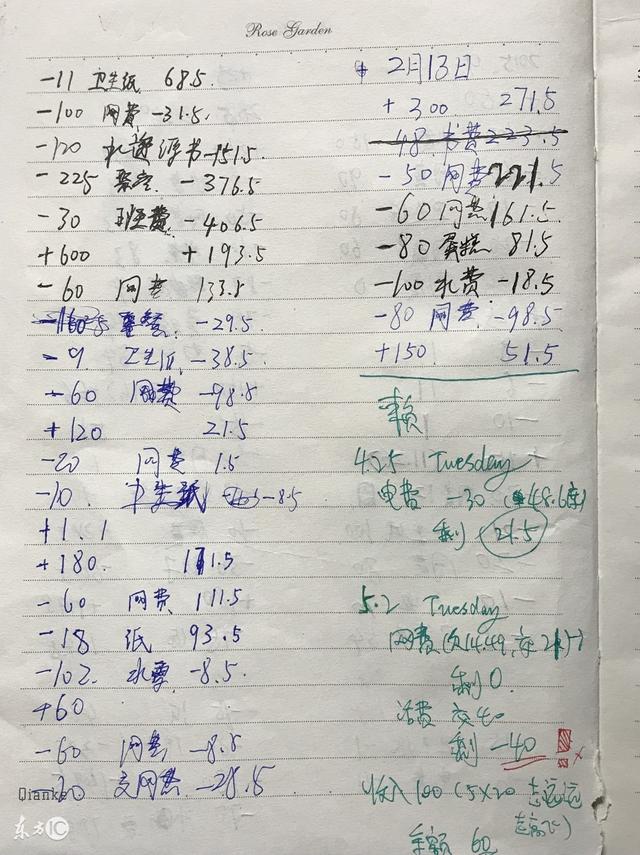 Rose Garden
-11 卫生纸 68.5
-100 网费 -31.5
-120 -151.5
-225 -376.5
-30 班费 -406.5
+600 +193.5
-60 网费 133.5
-29.5
-9 卫生纸 -38.5
-60 网费 -98.5
+120 21.5
-20 网费 1.5
-10 卫生纸 -8.5
+1.1
+180 171.5
-60 网费 111.5
-18 纸 93.5
-102 水票 -8.5
+60
-60 网费 -8.5
-20 交网费 -28.5
Qianku
东方IC
2月13日
+300 271.5
-48 书费 223.5
-50 网费 221.5
-60 网费 161.5
-80 蛋糕 81.5
-100 水费 -18.5
-80 网费 -98.5
+150 51.5
4.25 Tuesday
电费 -30
剩 21.5
5.2 Tuesday
网费(欠14.49,
剩0
话费 交40
剩 -40
收入100 (5×20
余额 60